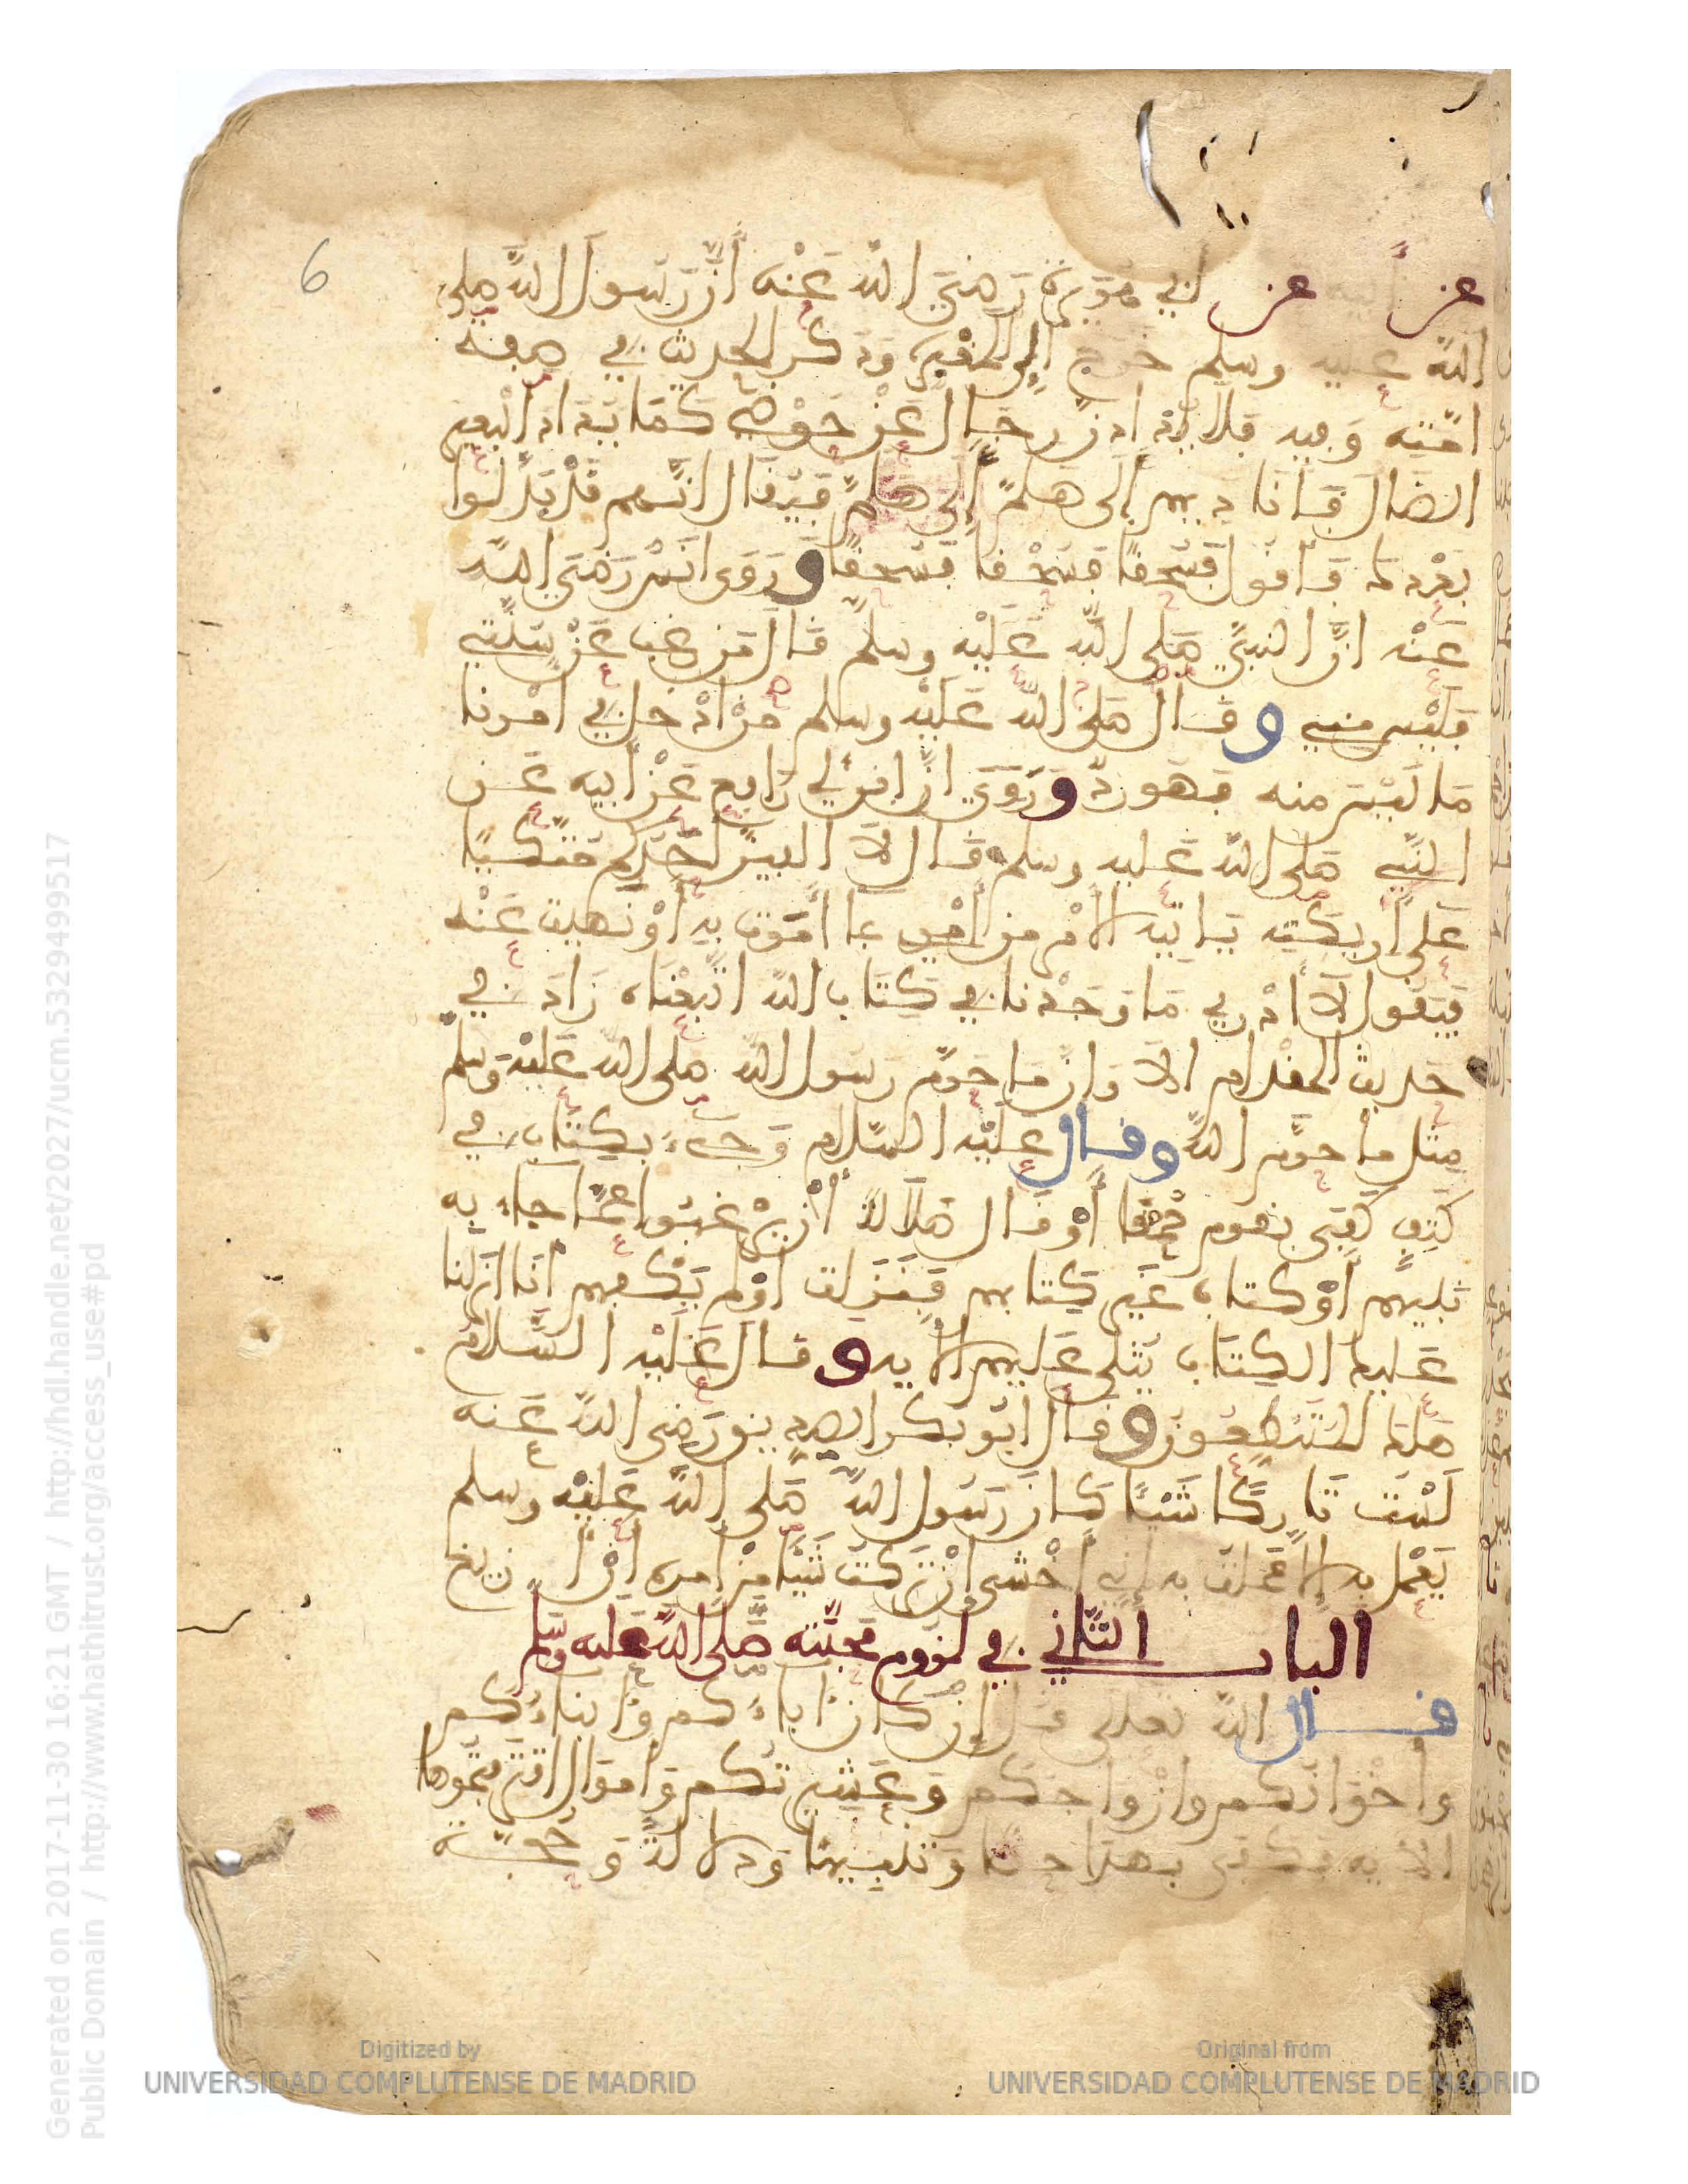 6
عن أبيه عن أبي هريرة رضي الله عنه أن رسول الله صلى
الله عليه وسلم خرج إلى المقبرة وذكر الحديث في صفة
امته وفيه فلا يذادن رجال عن حوضي كما يذاد البعير
الضال فأناديهم إلى هلم إلى هلم فيقال انهم قد بدلوا
بعدك فأقول فسحقا فسحقا فسحقا وروى انس رضي الله
عنه ان النبي صلى الله عليه وسلم قال من رغب عن سنتي
فليس مني وقال صلى الله عليه وسلم من ادخل في امرنا
ما ليس منه فهو رد وروى ابن ابي رافع عن أبيه عن
النبي صلى الله عليه وسلم قال لا الفين احدكم متكيا
على أريكته ياتيه الأمر من أمري مما أمرت به أو نهيت عنه
فيقول لا أدري ما وجدنا في كتاب الله اتبعناه زاد في
حديث المقدام الا وان ما حرم رسول الله صلى الله عليه وسلم
مثل ما حرم الله وقال عليه السلام وجيء بكتاب في
كتف كفى بقوم حمقا أو قال ضلالا أن يرغبوا عما جاء به
نبيهم أو كتاب غير كتابهم فنزلت اولم يكفهم أنا انزلنا
عليك الكتاب يتلى عليهم الآية وقال عليه السلام
هلك المتنطعون وقال ابو بكر الصديق رضي الله عنه
لست تاركا شيئا كان رسول الله صلى الله عليه وسلم
يعمل به إلا عملت به إني أخشى إن تركت شيئا من امره ان أزيغ
الباب الثاني في لزوم محبته صلى الله عليه وسلم
قال الله تعالى قل إن كان اباؤكم وأبناؤكم
وإخوانكم وأزواجكم وعشيرتكم وأموال اقترفتموها
الآية فكفى بهذا حضا وتنبيها ودلالة وحجة
Generated on 2017-11-30 16:21 GMT / http://hdl.handle.net/2027/ucm.5329499517
Public Domain / http://www.hathitrust.org/access_use#pd
Digitized by
UNIVERSIDAD COMPLUTENSE DE MADRID
Original from
UNIVERSIDAD COMPLUTENSE DE MADRID